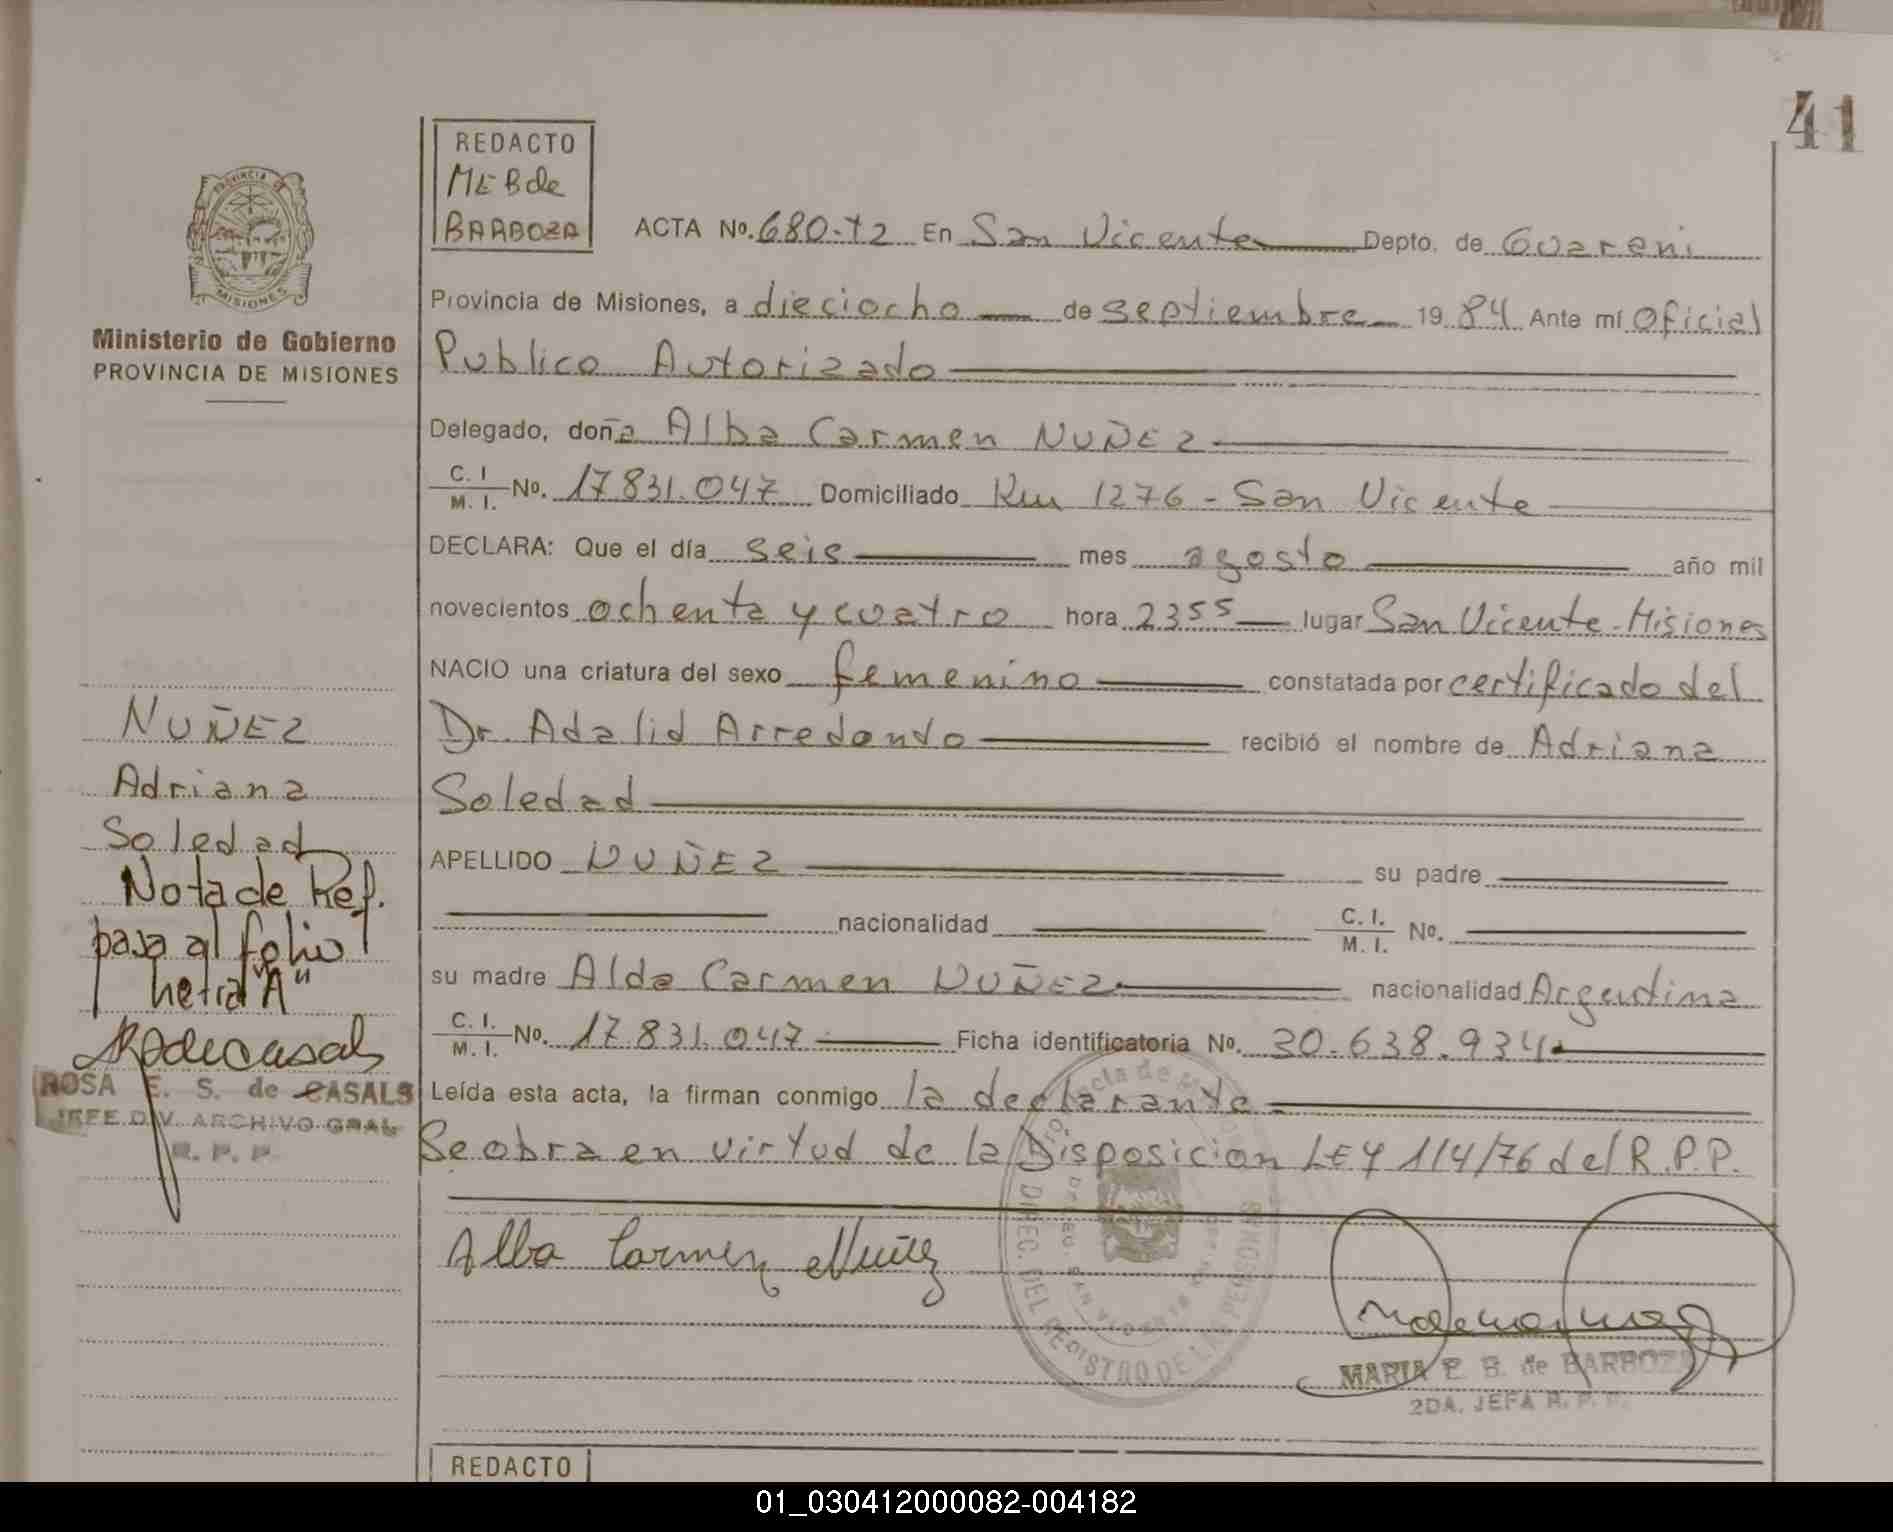 41
REDACTO
MEB de
BARBOZA
ACTA No. 680-T2 En San Vicente Depto. de Guarani
PROVINCIA DE
MISIONES
Ministerio de Gobierno
PROVINCIA DE MISIONES
Provincia de Misiones, a dieciocho de septiembre 1984 Ante mí Oficial
Publico Autorizado
Delegado, doña Alba Carmen NUÑEZ
C. I. M. I. No. 17.831.047 Domiciliado Km 1276 - San Vicente
DECLARA: Que el día seis mes agosto año mil
novecientos ochenta y cuatro hora 2355 lugar San Vicente-Misiones
NACIO una criatura del sexo femenino constatada por certificado del
Dr. Adalid Arredondo recibió el nombre de Adriana
Soledad
APELLIDO NUÑEZ su padre
nacionalidad C. I. M. I. No.
su madre Alda Carmen NUÑEZ nacionalidad Argentina
C. I. M. I. No. 17.831.047 Ficha identificatoria No. 30.638.934
Leída esta acta, la firman conmigo la declarante
Se obra en virtud de la Disposicion LEY 114/76 del R.P.P.
Alba Carmen Nuñez
MARIA E. B. de BARBOZA
2DA. JEFA R. P. P.
NUÑEZ
Adriana
Soledad
Nota de Ref.
pasa al folio 1
hetra "A"
ROSA E. S. de CASALS
JEFE DIV. ARCHIVO GRAL
R. P. P.
DIREC. DEL REGISTRO DE LAS PERSONAS
REDACTO
01_030412000082-004182